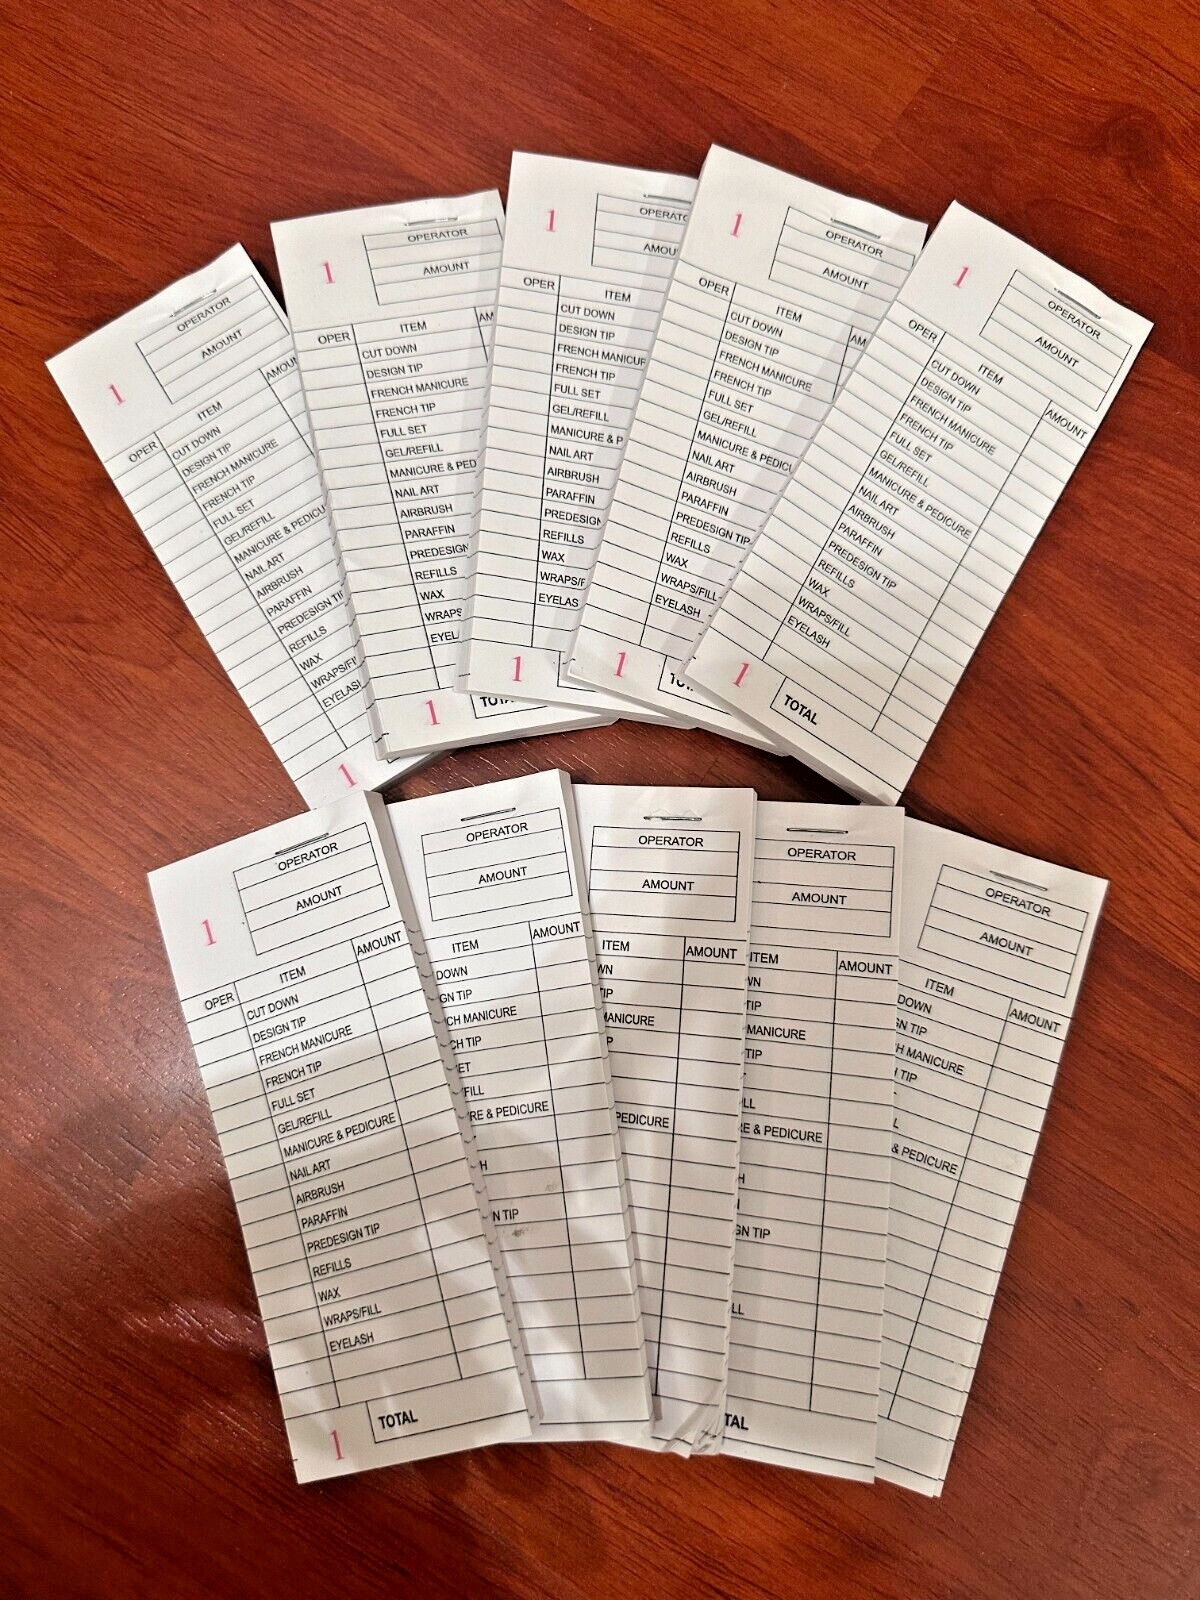 OPERATOR
AMOUNT
1
OPER ITEM AMOUN
CUT DOWN
DESIGN TIP
FRENCH MANICURE
FRENCH TIP
FULL SET
GEL/REFILL
MANICURE & PEDICU
NAIL ART
AIRBRUSH
PARAFFIN
PREDESIGN TIP
REFILLS
WAX
WRAPS/FI
EYELAS
1
OPERATOR
1 AMOUNT
OPER ITEM AM
CUT DOWN
DESIGN TIP
FRENCH MANICURE
FRENCH TIP
FULL SET
GEL/REFILL
MANICURE & PED
NAIL ART
AIRBRUSH
PARAFFIN
PREDESIGN
REFILLS
WAX
WRAPS
EYEL
1 TOTA
1 OPERATO
AMOU
OPER ITEM
CUT DOWN
DESIGN TIP
FRENCH MANICUR
FRENCH TIP
FULL SET
GEL/REFILL
MANICURE & P
NAIL ART
AIRBRUSH
PARAFFIN
PREDESIGN
REFILLS
WAX
WRAPS/F
EYELAS
1
1 OPERATOR
AMOUNT
OPER ITEM AM
CUT DOWN
DESIGN TIP
FRENCH MANICURE
FRENCH TIP
FULL SET
GEL/REFILL
MANICURE & PEDICU
NAIL ART
AIRBRUSH
PARAFFIN
PREDESIGN TIP
REFILLS
WAX
WRAPS/FILL
EYELASH
1 TO
1 OPERATOR
AMOUNT
OPER ITEM AMOUNT
CUT DOWN
DESIGN TIP
FRENCH MANICURE
FRENCH TIP
FULL SET
GEL/REFILL
MANICURE & PEDICURE
NAIL ART
AIRBRUSH
PARAFFIN
PREDESIGN TIP
REFILLS
WAX
WRAPS/FILL
EYELASH
1 TOTAL
OPERATOR
AMOUNT
1
OPER ITEM AMOUNT
CUT DOWN
DESIGN TIP
FRENCH MANICURE
FRENCH TIP
FULL SET
GEL/REFILL
MANICURE & PEDICURE
NAIL ART
AIRBRUSH
PARAFFIN
PREDESIGN TIP
REFILLS
WAX
WRAPS/FILL
EYELASH
1 TOTAL
OPERATOR
AMOUNT
ITEM AMOUNT
DOWN
GN TIP
CH MANICURE
CH TIP
ET
/FILL
RE & PEDICURE
H
N TIP
OPERATOR
AMOUNT
ITEM AMOUNT
WN
TIP
MANICURE
P
PEDICURE
OPERATOR
AMOUNT
ITEM AMOUNT
WN
TIP
MANICURE
TIP
LL
RE & PEDICURE
H
N
GN TIP
LL
TAL
OPERATOR
AMOUNT
ITEM AMOUNT
DOWN
GN TIP
H MANICURE
TIP
L
& PEDICURE